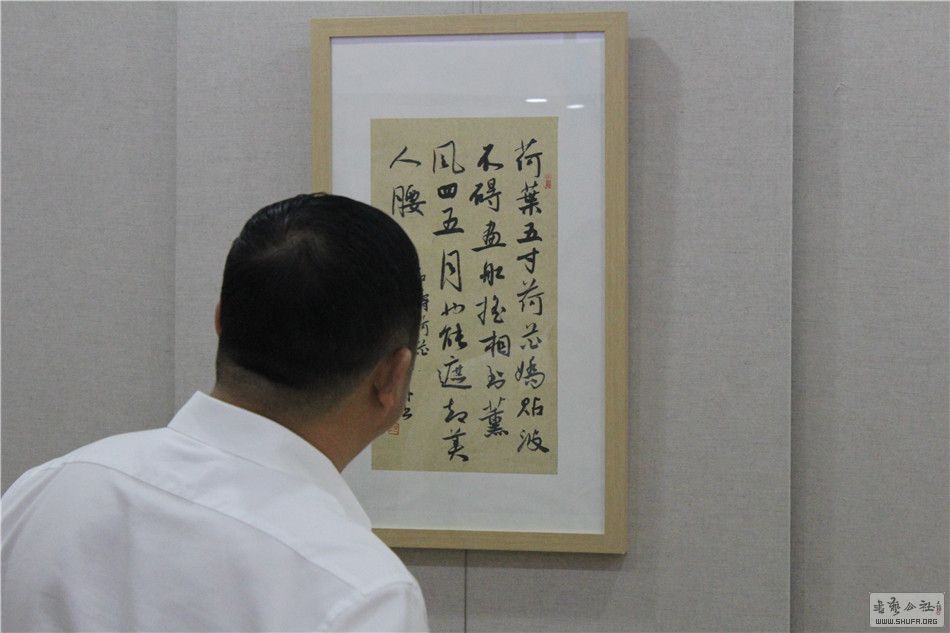 荷葉五寸荷花嬌貼波
不碍画船摇相到薰
風四五月也能遮却美
人腰
荷花
书艺公社
WWW.SHUFA.ORG